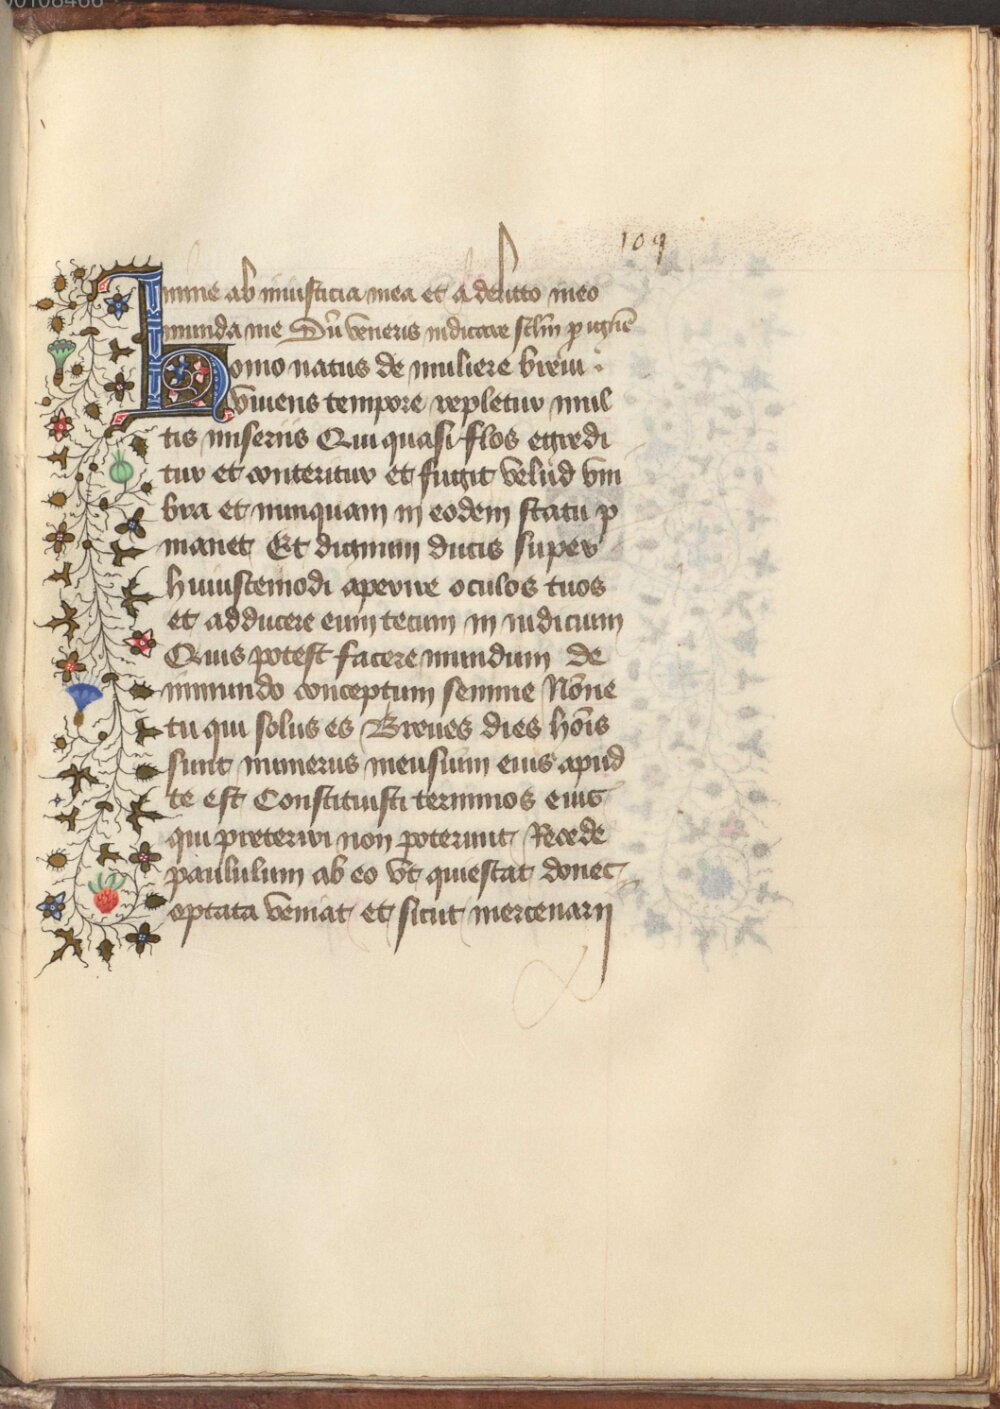 109
mine ab iniusticia mea et a delicto meo
munda me Dñ veneris iudicare sclm p ignē
Homo natus de muliere breui
viuens tempore repletur mul
tis miseriis Qui quasi flos egredi
tur et conteritur et fugit velud vm
bra et nunquam in eodem statu p
manet Et dignum ducis super
huiuscemodi aperire oculos tuos
et adducere eum tecum in iudicium
Quis potest facere mundum de
inmundo conceptum semine Nōne
tu qui solus es Breues dies hoīs
sunt numerus mensium eius apud
te est Constituisti terminos eius
qui preteriri non poterunt Recede
paululum ab eo vt quiescat donec
optata veniat et sicut mercenarij